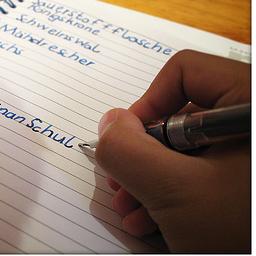 Sauerstoffflasche
Königskrone
Schweinswal
Mähdrescher
chs
Schul